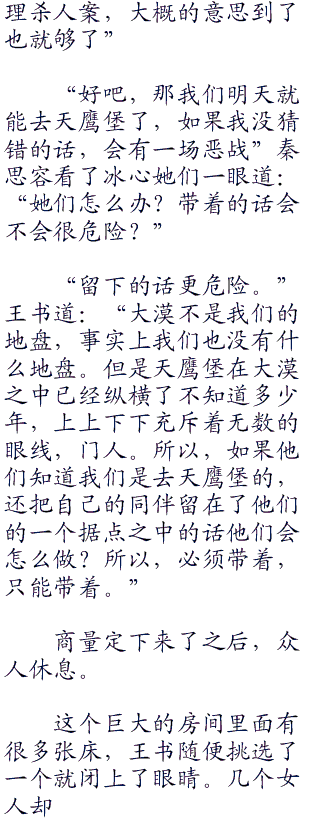 理杀人案，大概的意思到了
也就够了”
“好吧，那我们明天就
能去天鹰堡了，如果我没猜
错的话，会有一场恶战”秦
思容看了冰心她们一眼道：
“她们怎么办？带着的话会
不会很危险？”
“留下的话更危险。”
王书道：“大漠不是我们的
地盘，事实上我们也没有什
么地盘。但是天鹰堡在大漠
之中已经纵横了不知道多少
年，上上下下充斥着无数的
眼线，门人。所以，如果他
们知道我们是去天鹰堡的，
还把自己的同伴留在了他们
的一个据点之中的话他们会
怎么做？所以，必须带着，
只能带着。”
商量定下来了之后，众
人休息。
这个巨大的房间里面有
很多张床，王书随便挑选了
一个就闭上了眼睛。几个女
人却